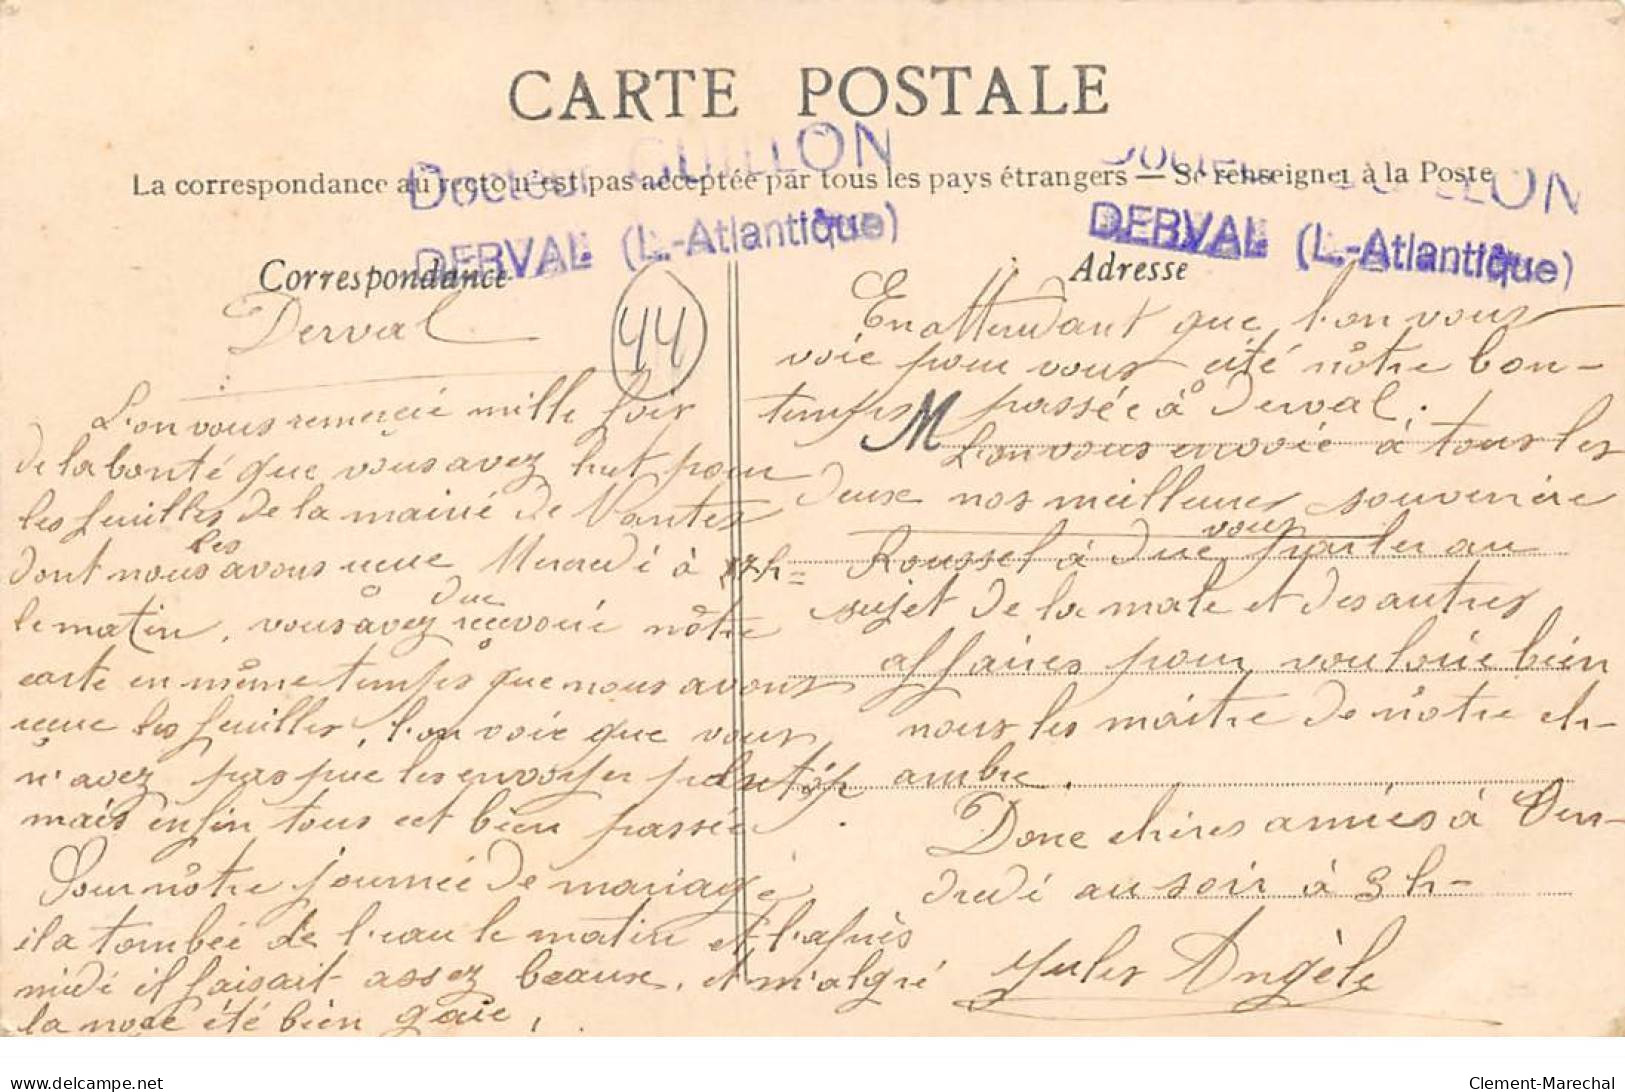 CARTE POSTALE
Docteur GUILLON
DERVAL (L.-Atlantique)
Docteur GUILLON
DERVAL (L.-Atlantique)
La correspondance au recto n'est pas acceptée par tous les pays étrangers — Se renseigner à la Poste
Correspondance
44
Derval
L'on vous remercie mille fois
de la bonté que vous avez hut pour
les feuilles de la mairie de Nantes
dont nous les avons reçue Mercredi à
le matin, vous avez due recevoir nôtre
carte en même temps que nous avons
reçue les feuilles, l'on voie que vous
n'avez pas pue les envoyer plutôt
mais enfin tous cet bien passée.
Pour nôtre journée de mariage
il a tombée de l'eau le matin et l'après
midi il faisait assez beaux, et m'algré
la noce été bien gaie,
Adresse
En attendant que l'on vous
voie pour vous cité nôtre bon-
temps passée à Derval.
M
L'on vous envoie à tous les
deux nos meilleures souvenire
Roussel à due vous parler au
sujet de la male et des autres
affaires pour vouloir bien
nous les maitre de nôtre ch-
ambre.
Donc chères amies à Ven-
dredi au soir à 3 h-
Jules Angèle
Clement-Marechal
delcampe.net